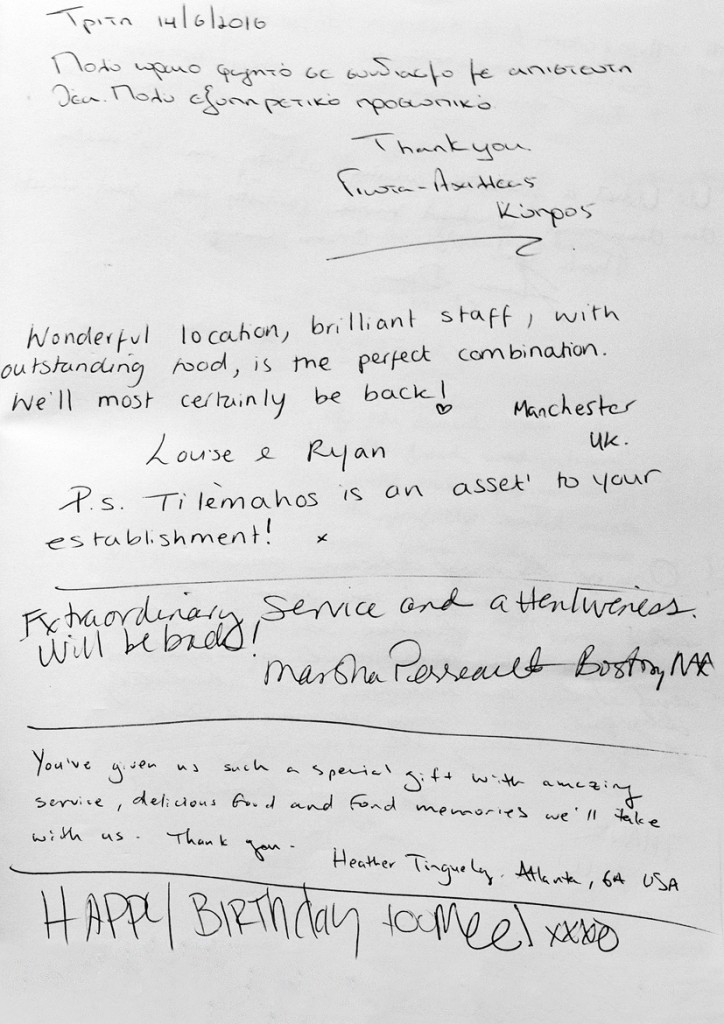 Τριτη 14/6/2016
Πολυ ωραιο φαγητό σε συνδιασμο με απιστευτη
θεα. Πολυ εξυπηρετικό προσωπικό.
Thank you.
Γιωτα - Αχιλλεας
Κύπρος
Wonderful location, brilliant staff, with
outstanding food, is the perfect combination.
We'll most certainly be back! ♡
Manchester
UK.
Louise & Ryan
P.s. Tilèmahos is an asset to your
establishment! x
Extraordinary Service and attentiveness.
Will be back!
Marsha Perreault Boston, MA
You've given us such a special gift with amazing
service, delicious food and fond memories we'll take
with us. Thank you.
Heather Tinguely. Atlanta, GA USA
HAPPY BIRTHday to Mee! xxxo